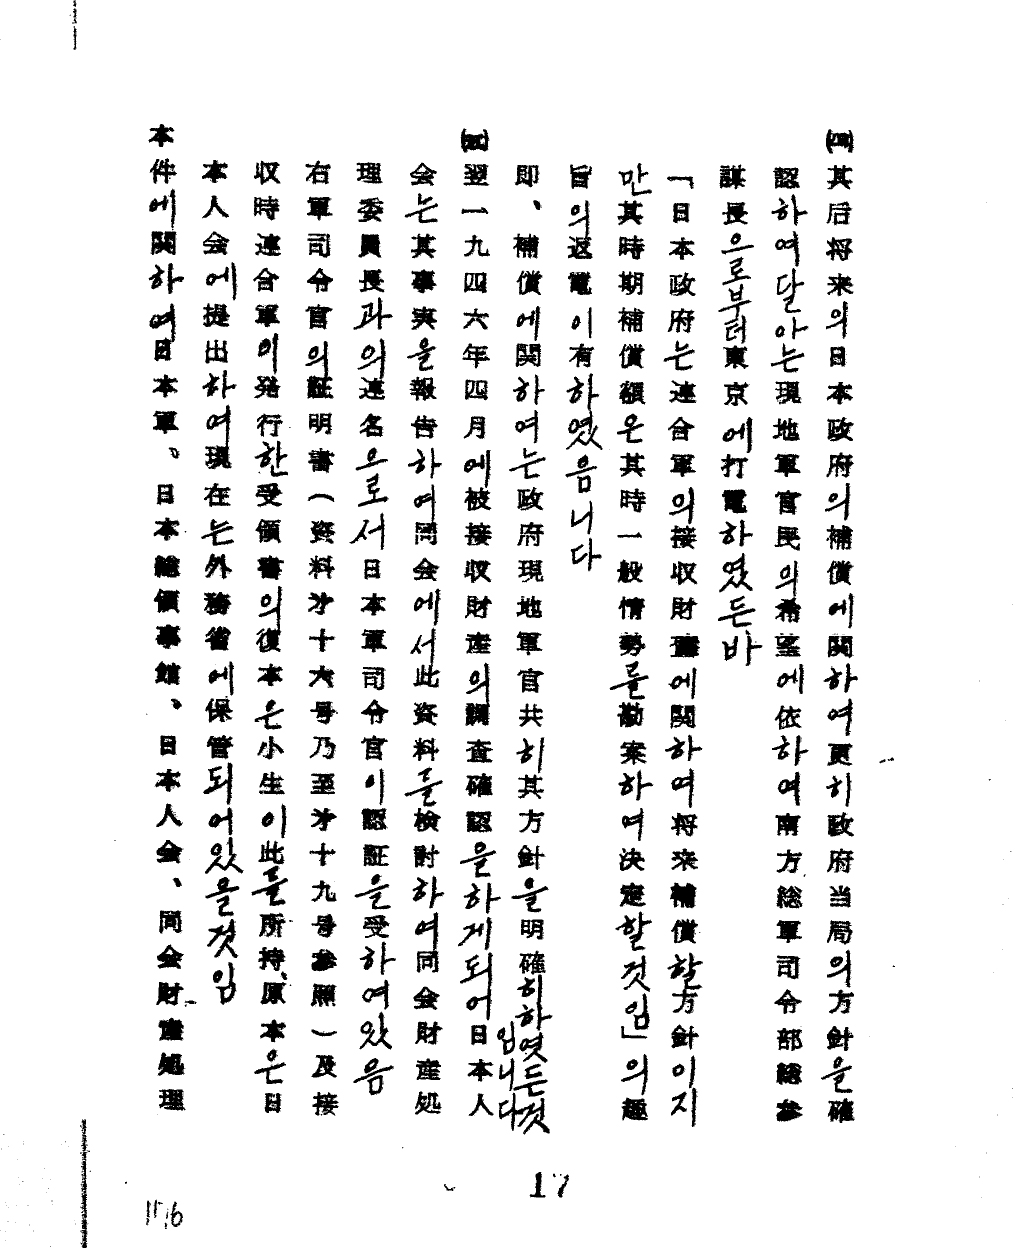 ㈣其后将来의日本政府의補償에関하여更히政府当局의方針을確
認하여달아는現地軍官民의希望에依하여南方総軍司令部総参
謀長으로부터東京에打電하였든바
「日本政府는連合軍의接収財産에関하여将来補償할方針이지
만其時期補償額은其時一般情勢를勘案하여決定할것임」의趣
旨의返電이有하였음니다
即、補償에関하여는政府現地軍官共히其方針을明確히하엿든것
임니다
㈤翌一九四六年四月에被接収財産의調査確認을하게되어日本人
会는其事実을報告하여同会에서此資料를検討하여同会財産処
理委員長과의連名으로서日本軍司令官이認証을受하여있음
右軍司令官의証明書(資料才十六号乃至才十九号参照)及接
収時連合軍이発行한受領書의復本은小生이此를所持、原本은日
本人会에提出하여現在는外務省에保管되어있을것임
本件에関하여日本軍、日本総領事館、日本人会、同会財産処理
17